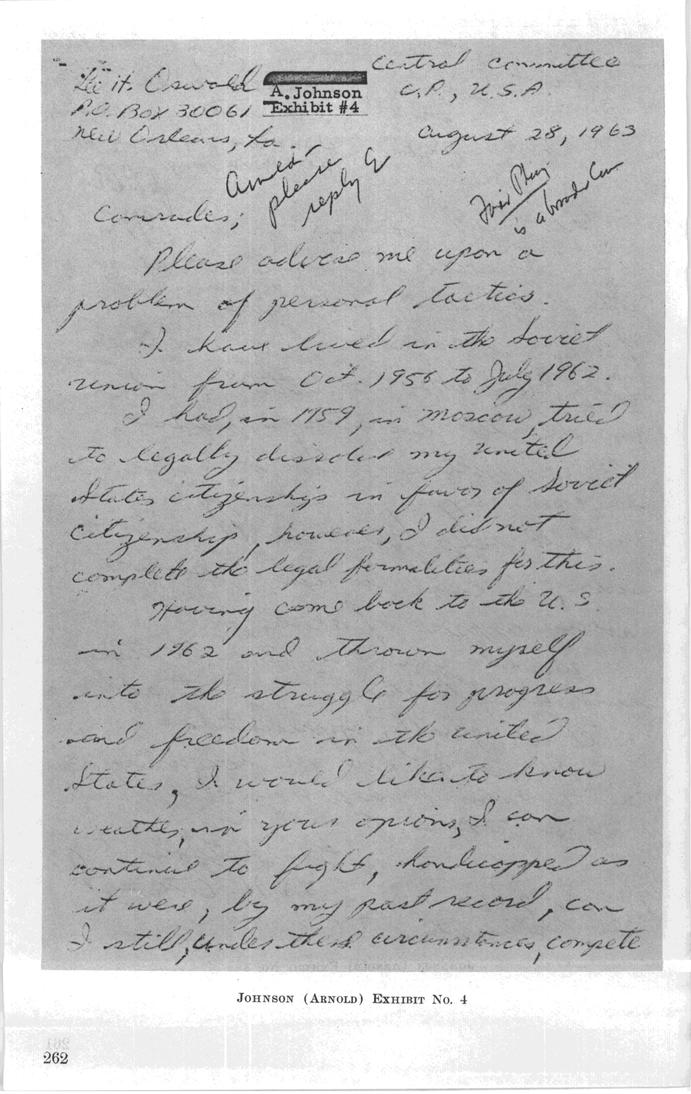 Lee H. Oswald
P.O. Box 30061
New Orleans, La.
A. Johnson
Exhibit #4
Central Committee
C.P., U.S.A.
August 28, 1963
Arnold-
please
reply E
is a
Comrades;
Please advise me upon a
problem of personal tactics.
I have lived in the Soviet
union from Oct. 1956 to July 1962.
I had, in 1959, in moscow, tried
to legally dissolve my united
States citizenship in favor of Soviet
citizenship, however, I did not
complete the legal formalities for this.
Having come back to the U.S.
in 1962 and thrown myself
into the struggle for progress
and freedom in the united
States, I would like to know
weather, in your opions, I can
continue to fight, handicapped as
it were, by my past record, can
I still, under these circumstances, compete
JOHNSON (ARNOLD) EXHIBIT NO. 4
262